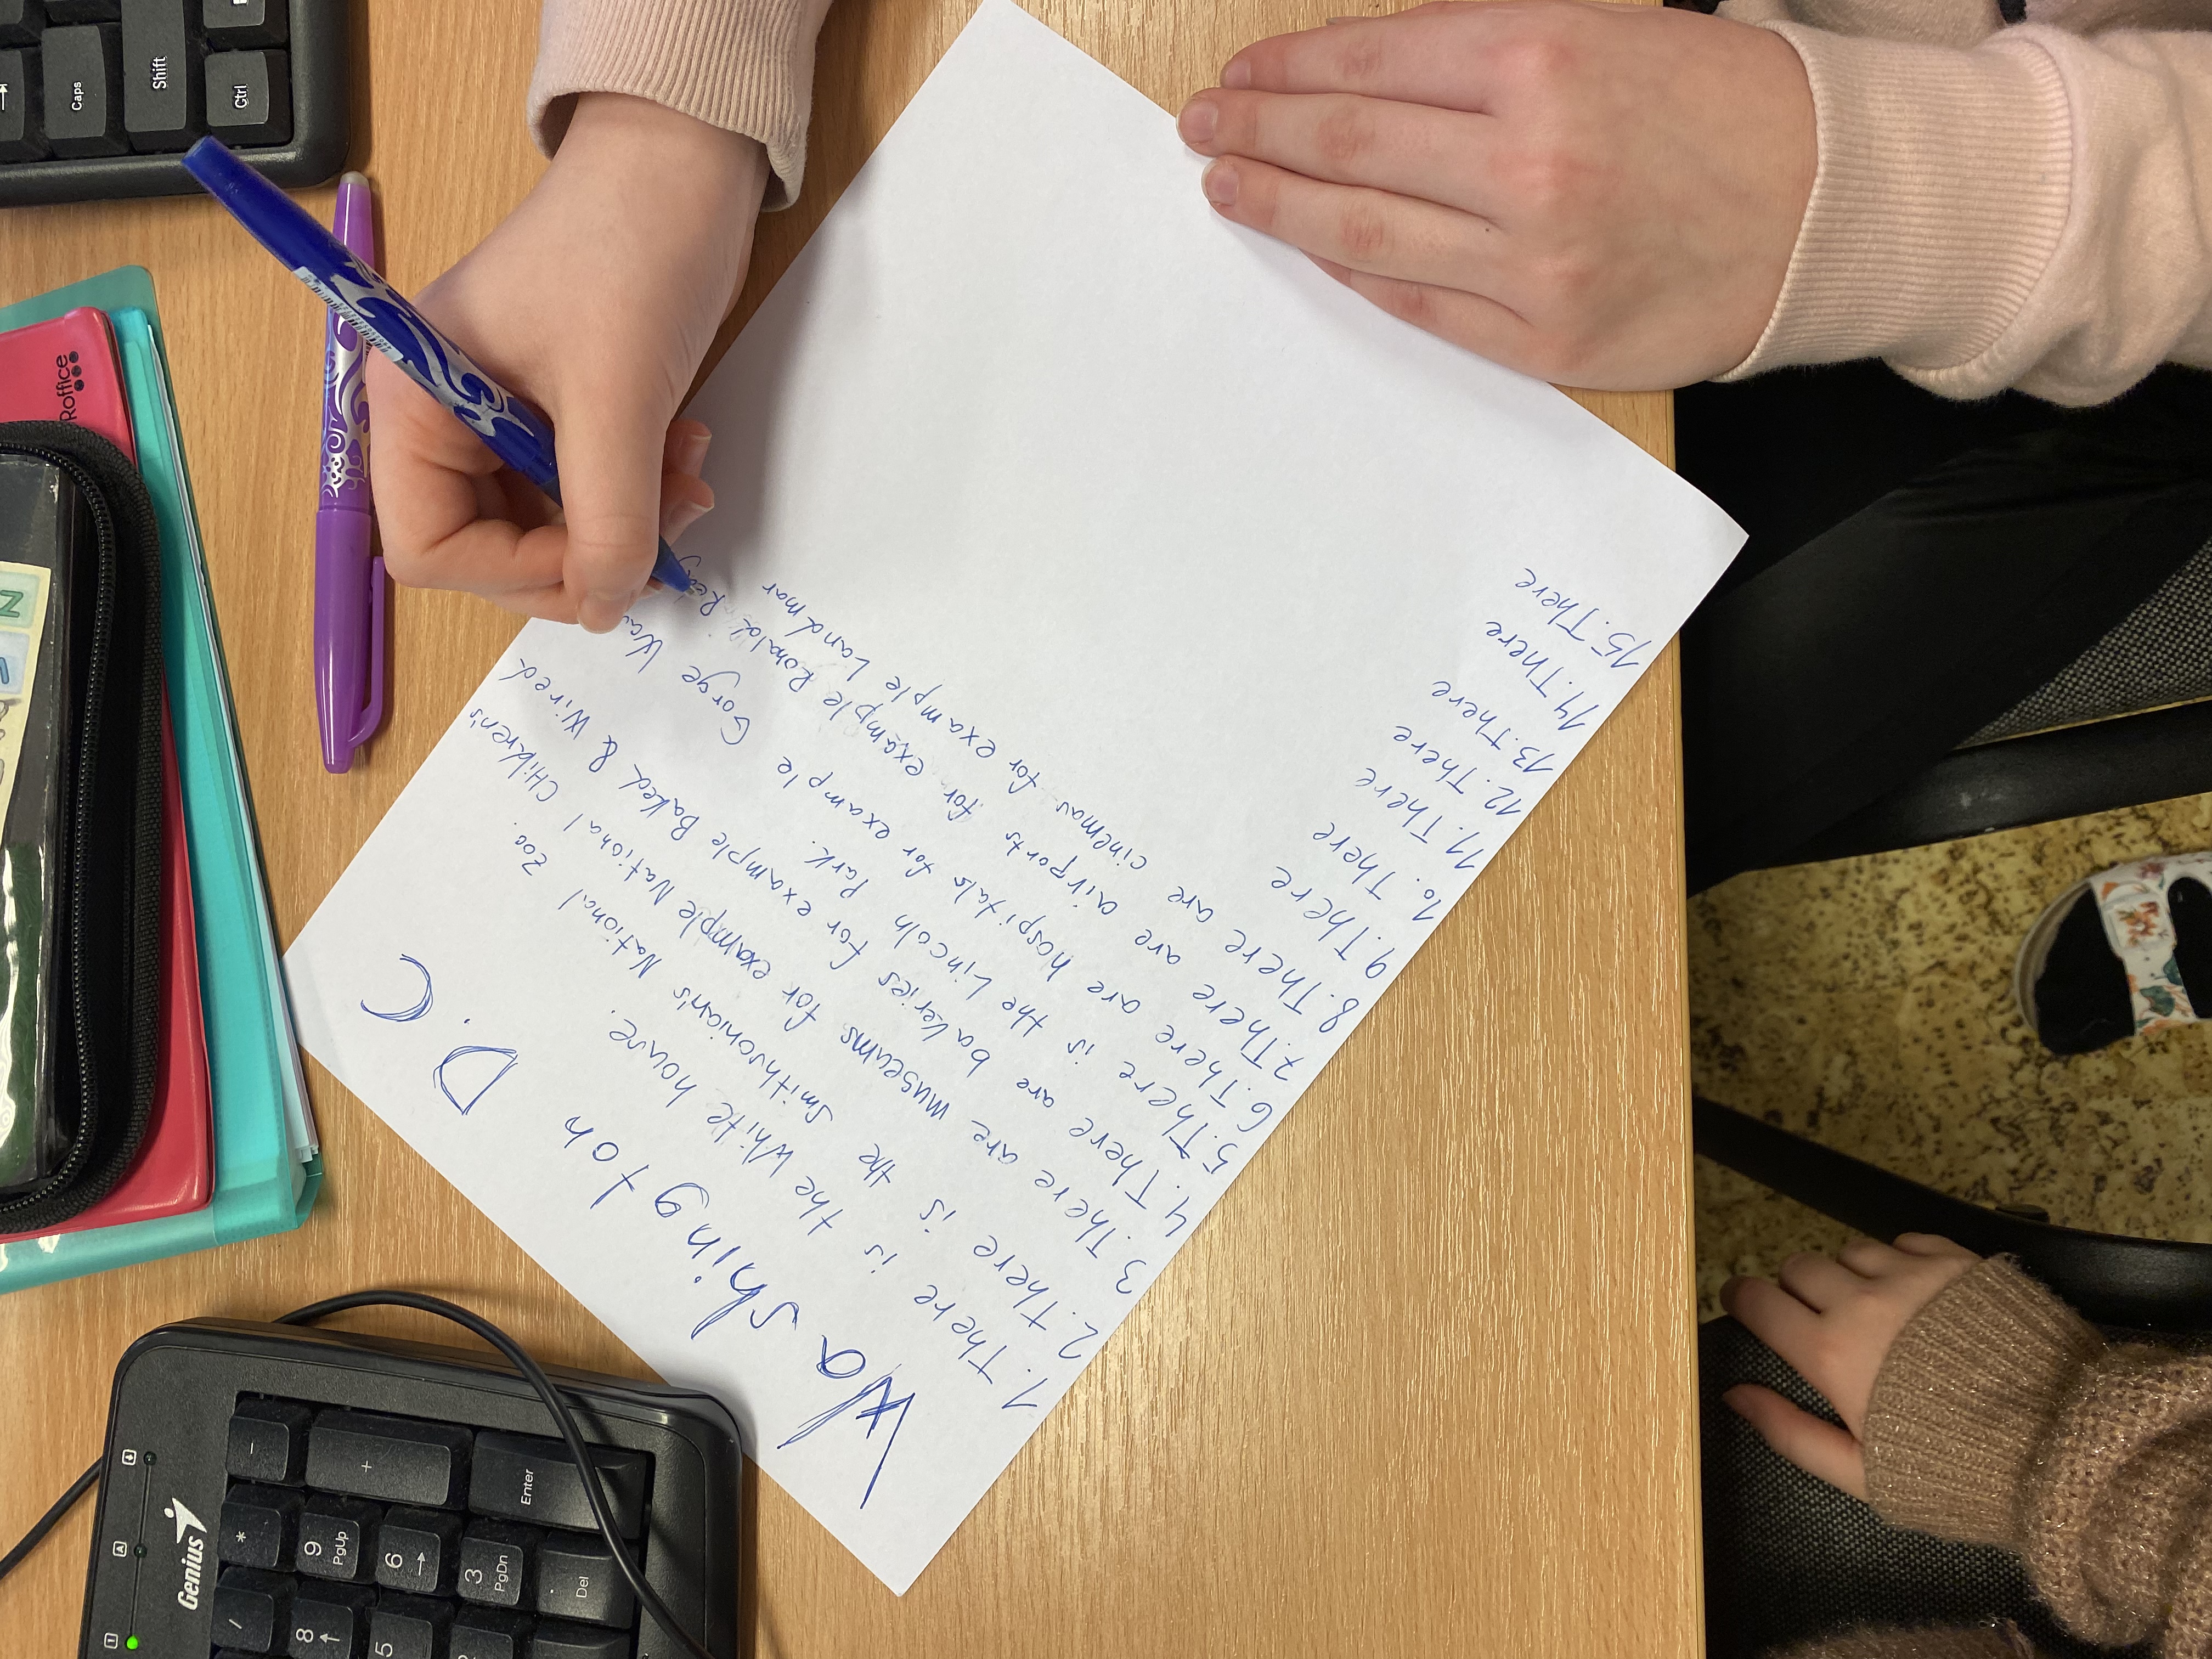 Washington D.C
1. There is the White house.
2. There is the Smithsonian's National Zoo.
3. There are museums for example National CHildren's
4. There are bakeries for example Baked & Wired
5. There is the Lincoln Park.
6. There are hospitals for example Gorge
7. There are airports for example Ronald
8. There are cinemas for example Landmar
9. There
10. There
11. There
12. There
13. There
14. There
15. There
Caps
Shift
Ctrl
Roffice
Genius
-
+
Enter
*
9 PgUp
6 →
3 PgDn
. Del
/
8 ↑
5